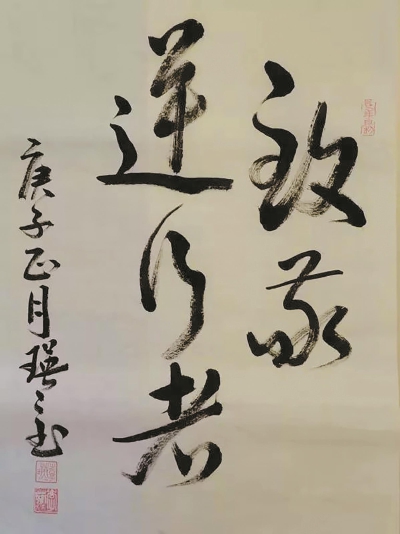 致敬
逆行者
庚子正月瑛之书